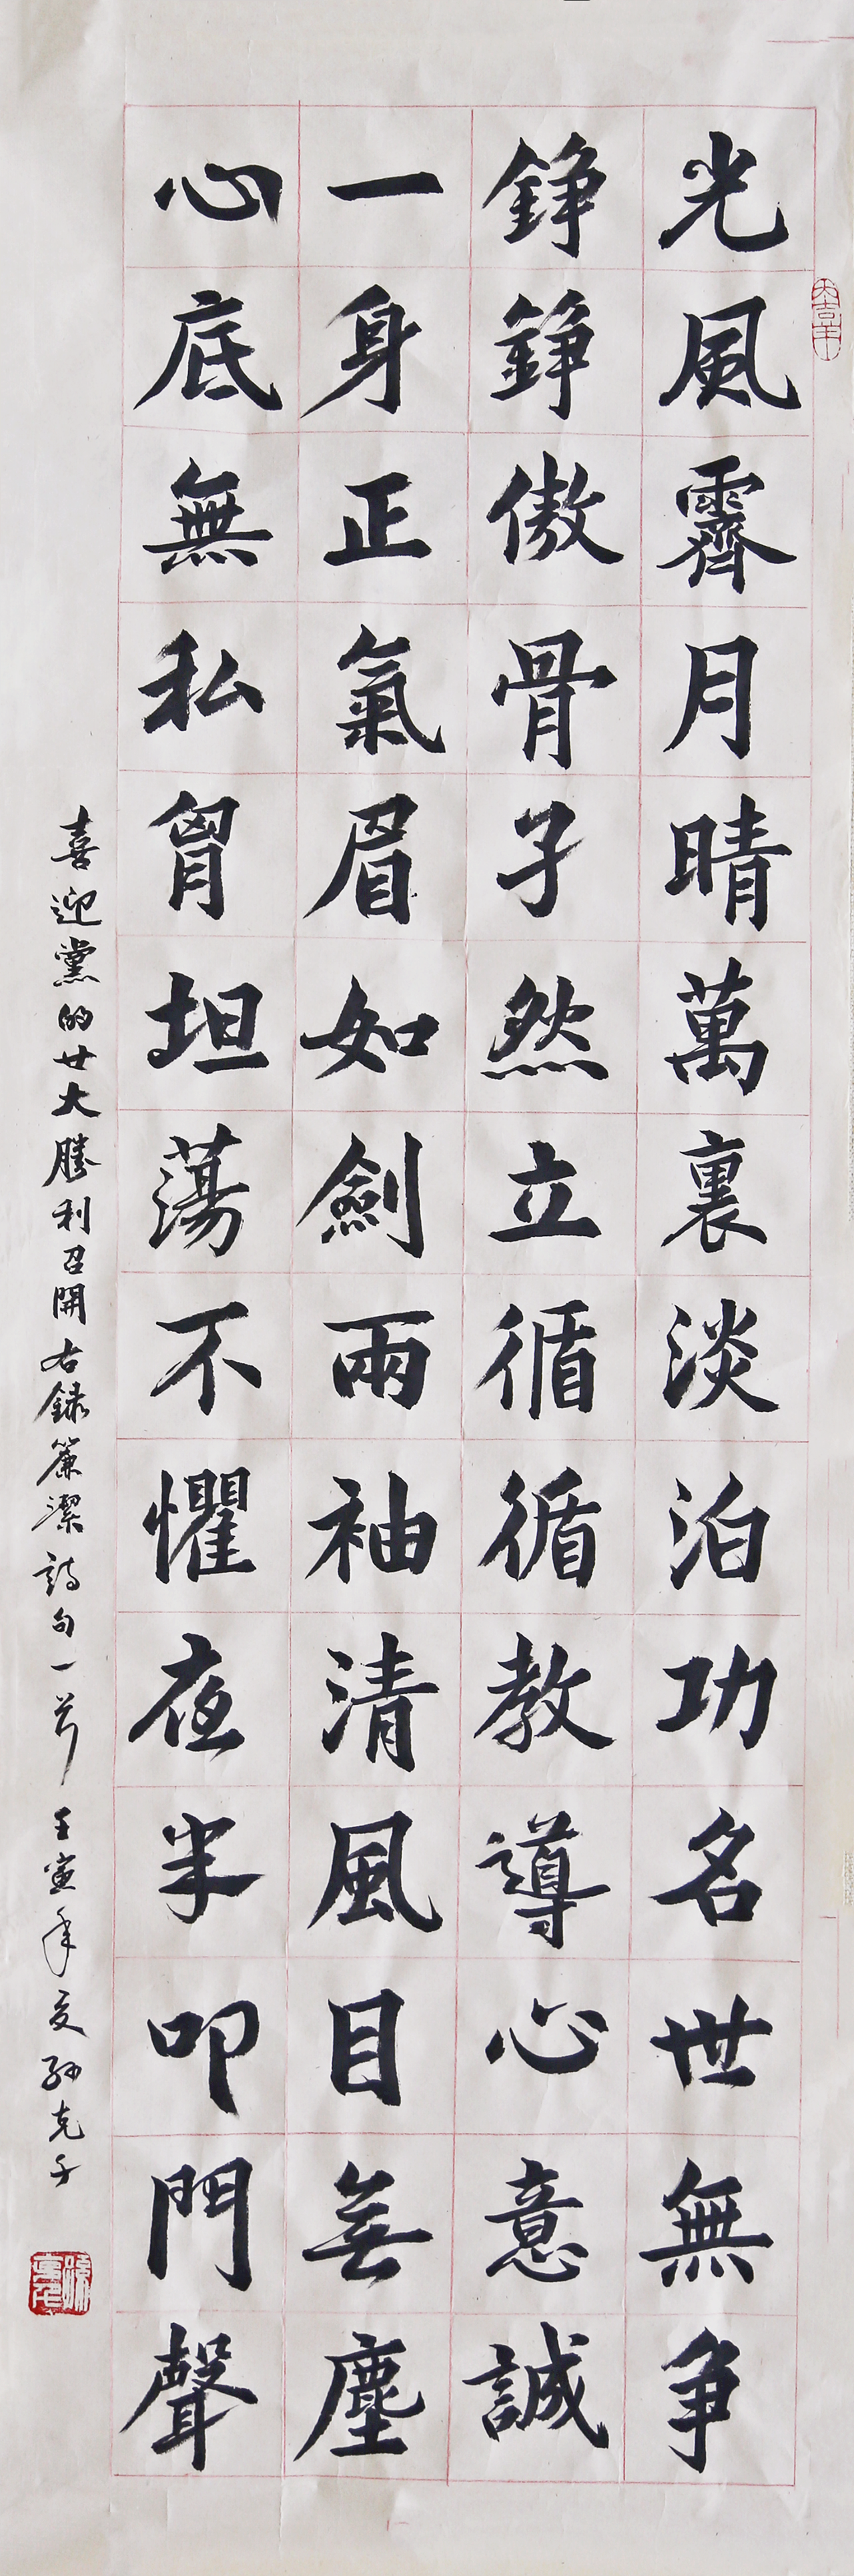 光風霽月晴萬裏淡泊功名世無争
錚錚傲骨孑然立循循教導心意誠
一身正氣眉如劍兩袖清風目無塵
心底無私胷坦蕩不懼夜半叩門聲
喜迎黨的廿大勝利召開右録簾潔詩句一首壬寅年夏孫克